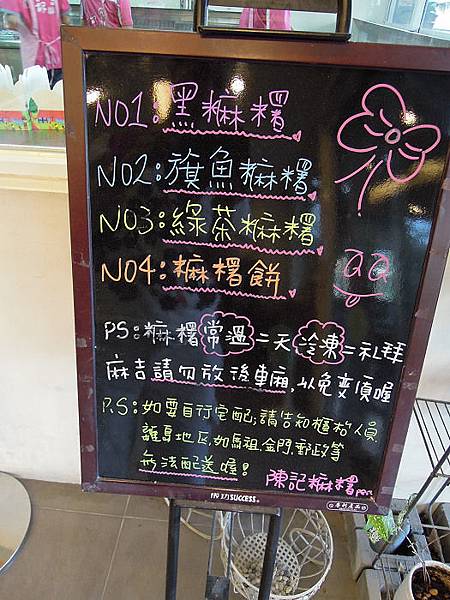 NO1:黑麻糬
NO2:旗魚麻糬
NO3:綠茶麻糬
NO4:麻糬餅
PS:麻糬常溫=天冷凍=礼拜
麻吉請勿放後車廂,以免變質喔
P.S:如要自行宅配,請告知櫃枱人員
離島地区,如馬祖.金門.郵政等
無法配送喔!
陳記麻糬
成功SUCCESS